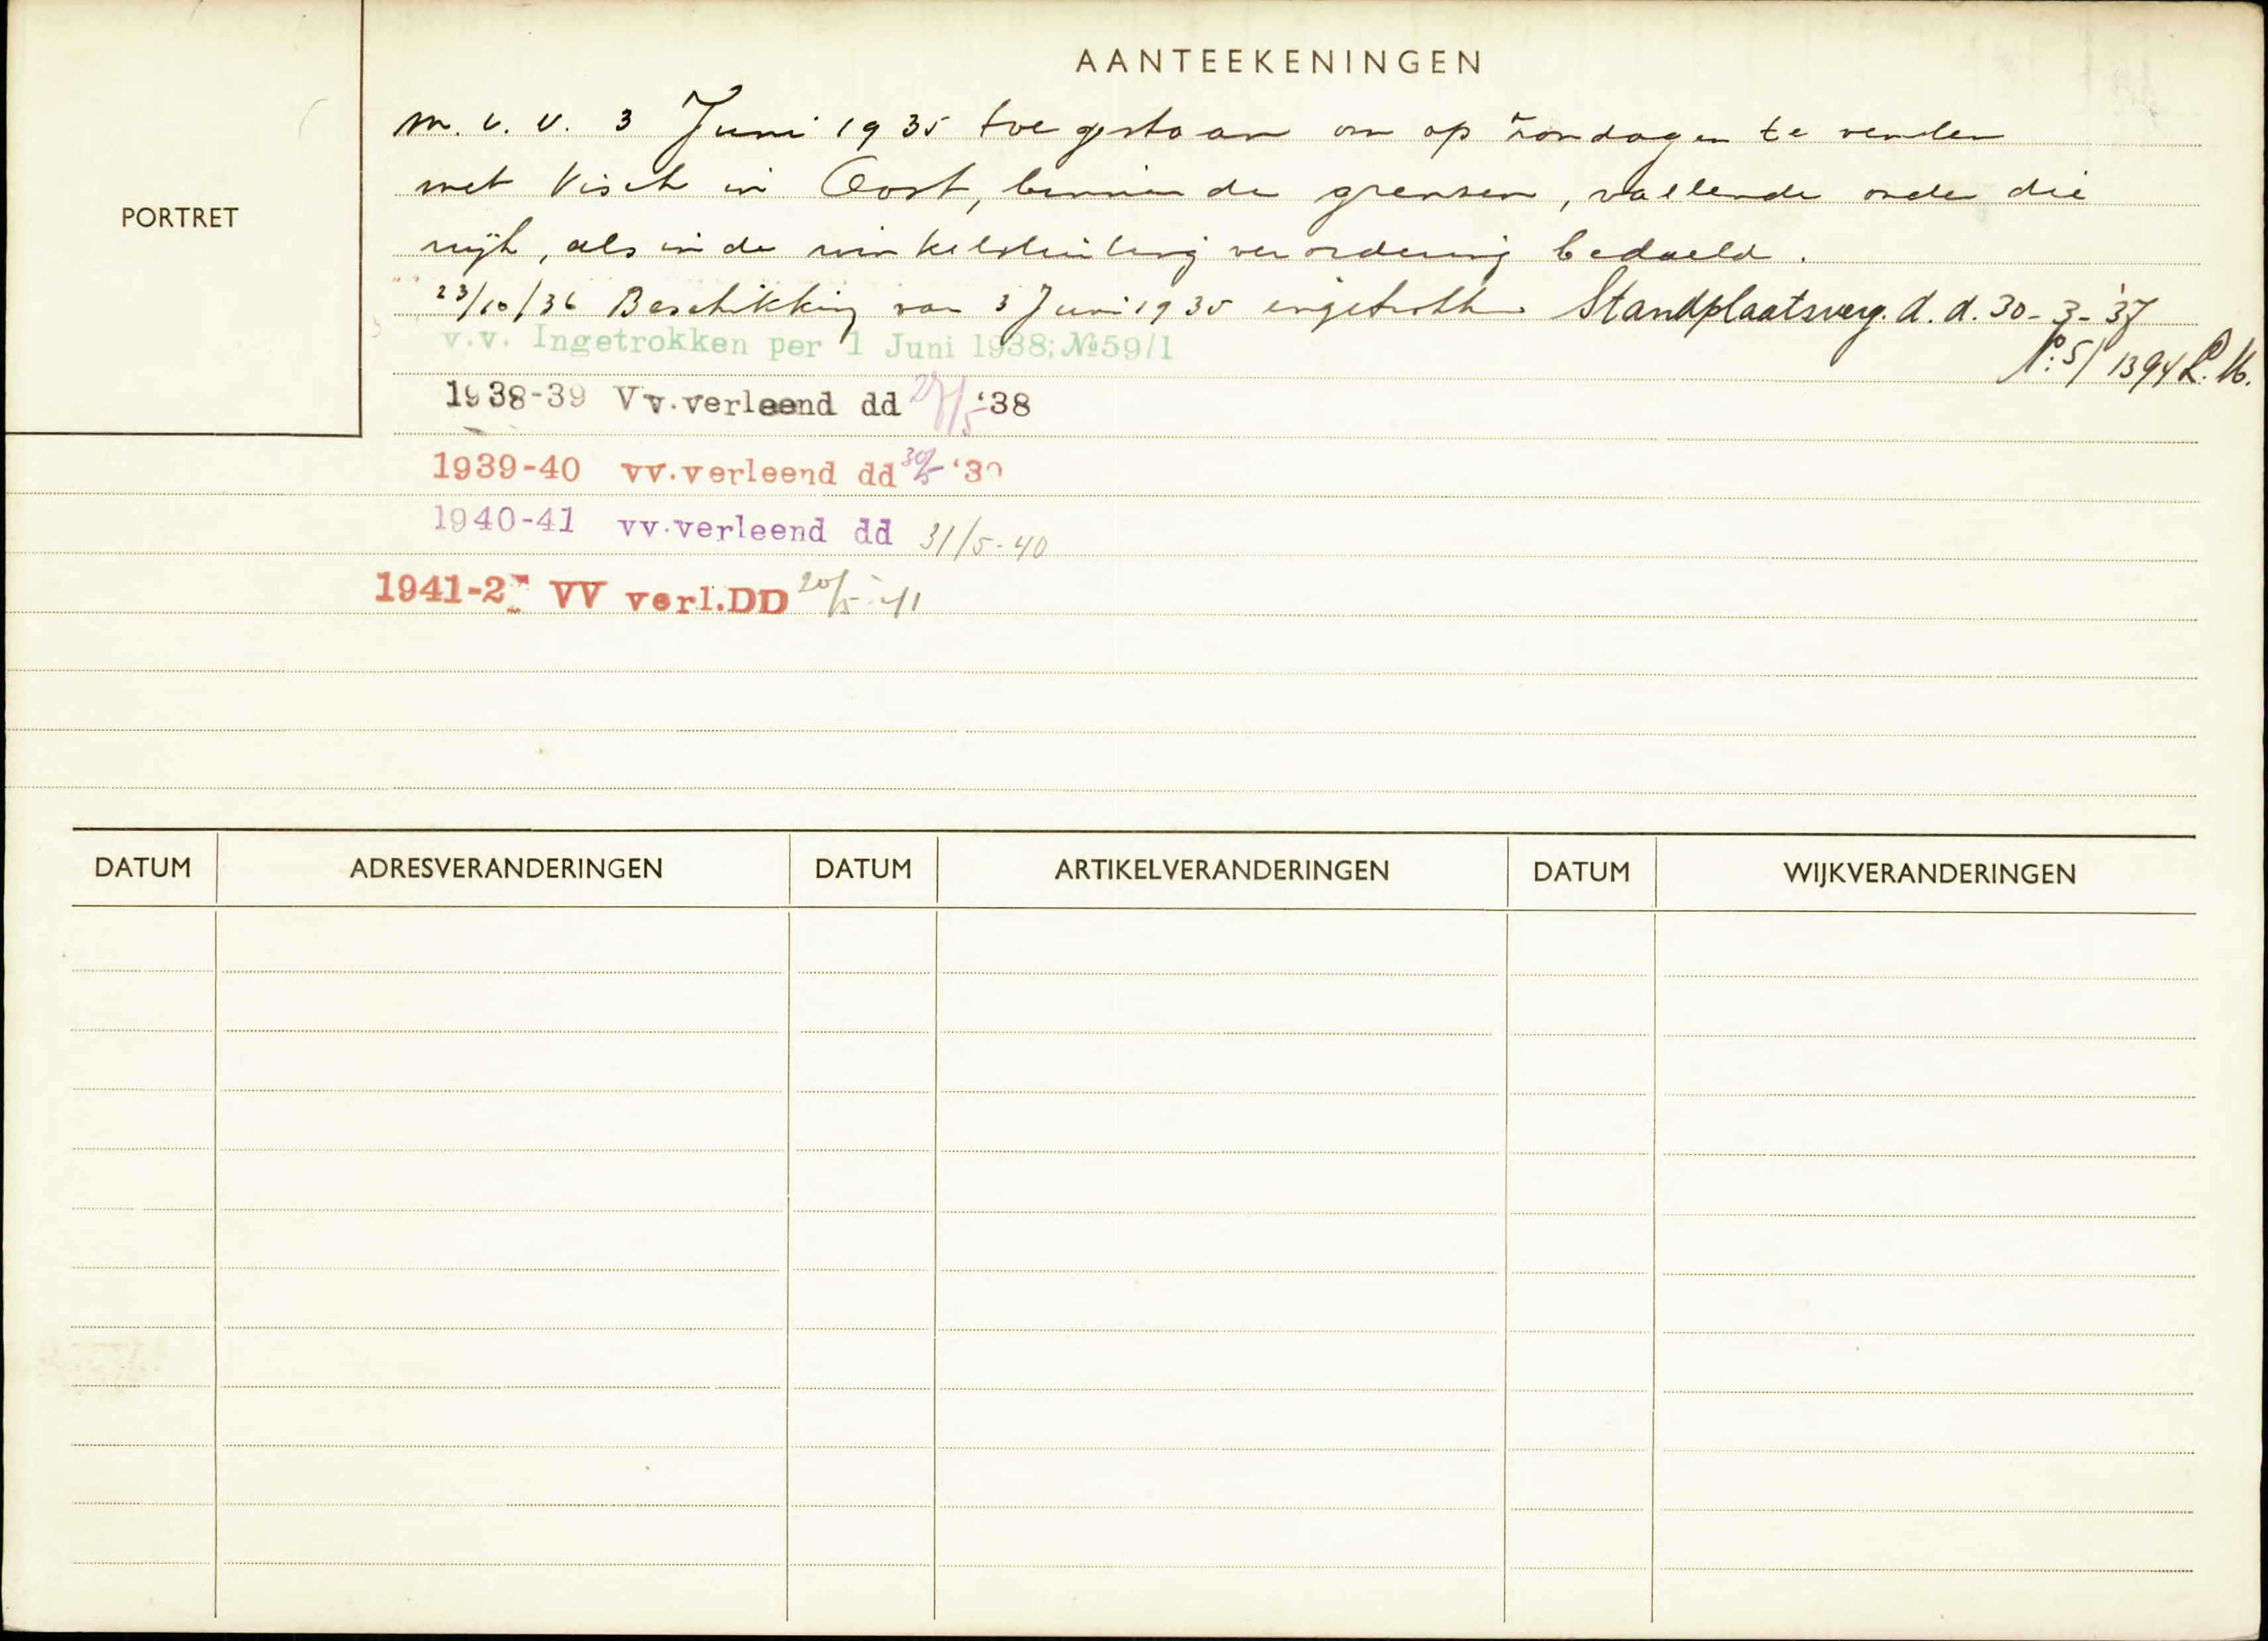 AANTEEKENINGEN
PORTRET
m.i.v. 3 Juni 1935 toegestaan om op zondagen te venten
met Visch in Oost, binnen de grenzen, vallende onder die
wijk, als in de winkelsluitingverordening bedoeld.
23/10/36 Beschikking van 3 Juni 1935 ingetrokken Standplaatsverg. d.d. 30-3-'37
No. 5/1394 L.M.
v.v. Ingetrokken per 1 Juni 1938; №59/1
1938-39 Vv.verleend dd /5 '38
1939-40 vv.verleend dd 30/5 '39
1940-41 vv.verleend dd 31/5-40
1941-2 VV verl.DD 20/5-41
DATUM ADRESVERANDERINGEN DATUM ARTIKELVERANDERINGEN DATUM WIJKVERANDERINGEN